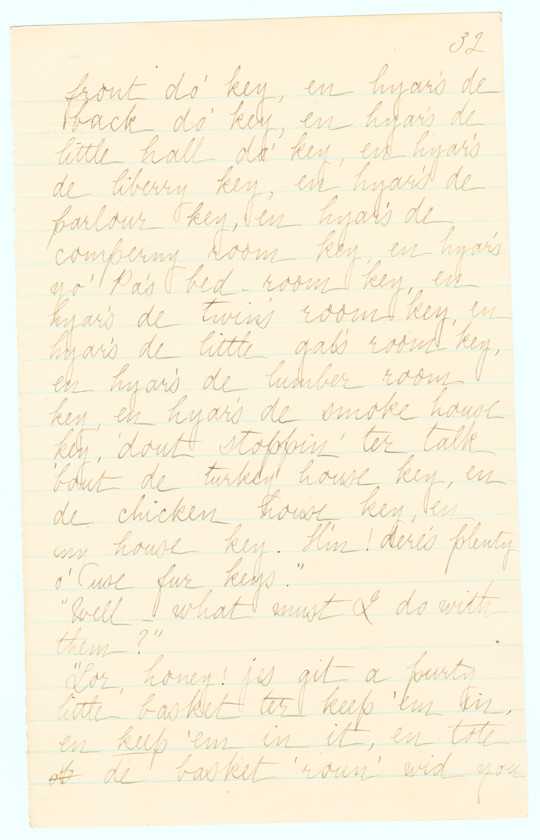 32
front do' key, en hyar's de
back do' key, en hyar's de
little hall do' key, en hyar's
de liberry key, en hyar's de
parlour key, en hyar's de
comperny room key, en hyar's
yo' Pa's bed-room key, en
hyar's de twin's room key, en
hyar's de little gal's room key,
en hyar's de lumber room
key, en hyar's de smoke house
key, 'dout stoppin' ter talk
'bout de turkey house key, en
de chicken house key, en
my house key. Hm! dere's plenty
o' 'use fur keys."
"Well - what must I do with
them?"
"Lor, honey! jes git a purty
little basket ter keep 'em in,
en keep 'em in it, en tote
de basket 'roun' wid you